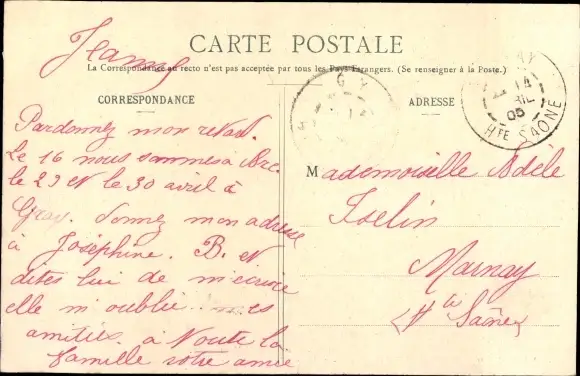 Jeanne
CARTE POSTALE
La Correspondance au recto n'est pas acceptée par tous les Pays Etrangers. (Se renseigner à la Poste.)
CORRESPONDANCE
Pardonnez mon retard.
Le 16 nous sommes à
le 23 et le 30 avril à
Gray. Donnez mon adresse
à Joséphine. B. et
dites lui de m'écrire
elle m'oublie
amitiés. à toute la
famille votre amie
ADRESSE
GY
14
05
HTE SAONE
Mademoiselle Adèle
Iselin
Marnay
(Hte Saône)